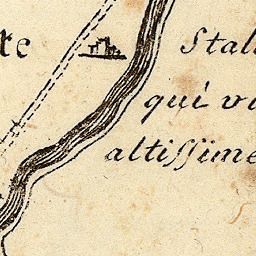 te
Stal
qui vi
altiſſime